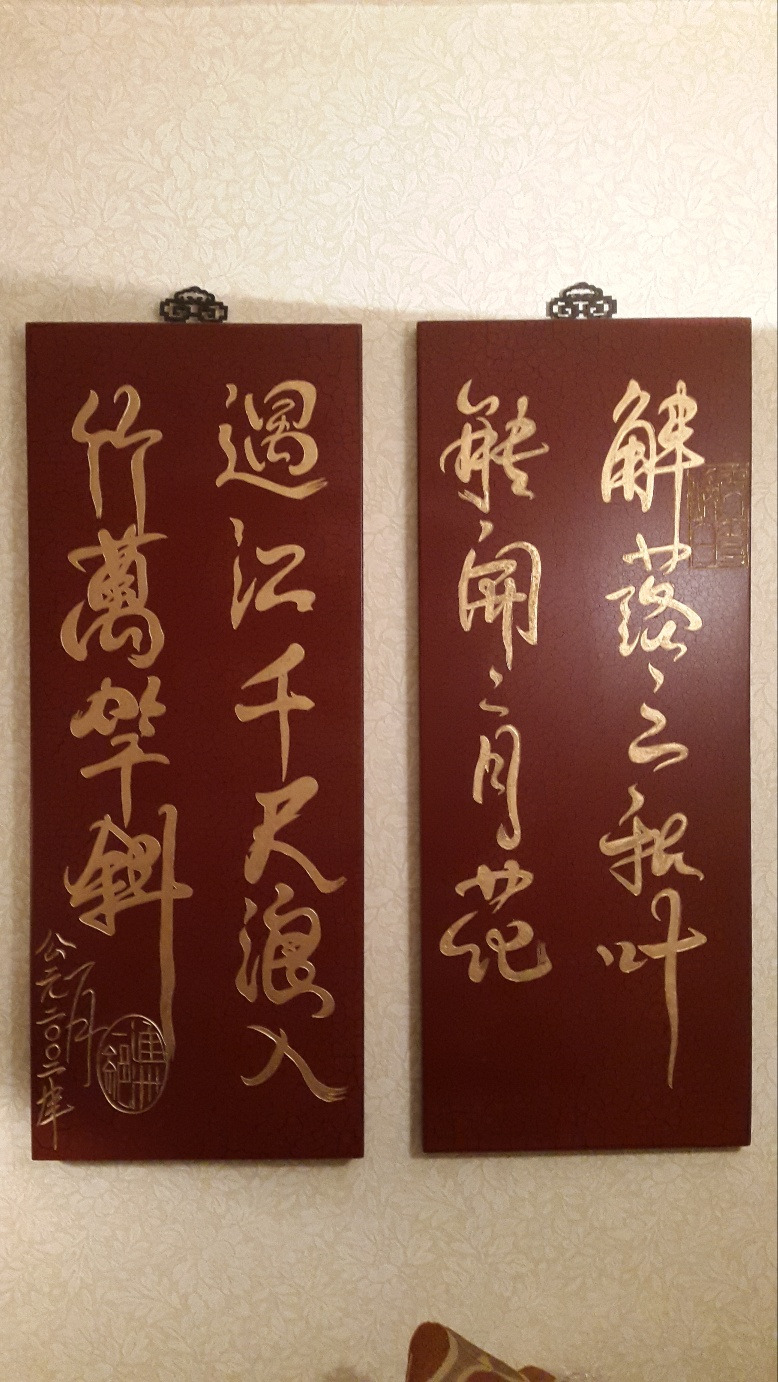 解落三秋叶
能開二月花
過江千尺浪入
竹萬竿斜
公元二〇〇二年
一月